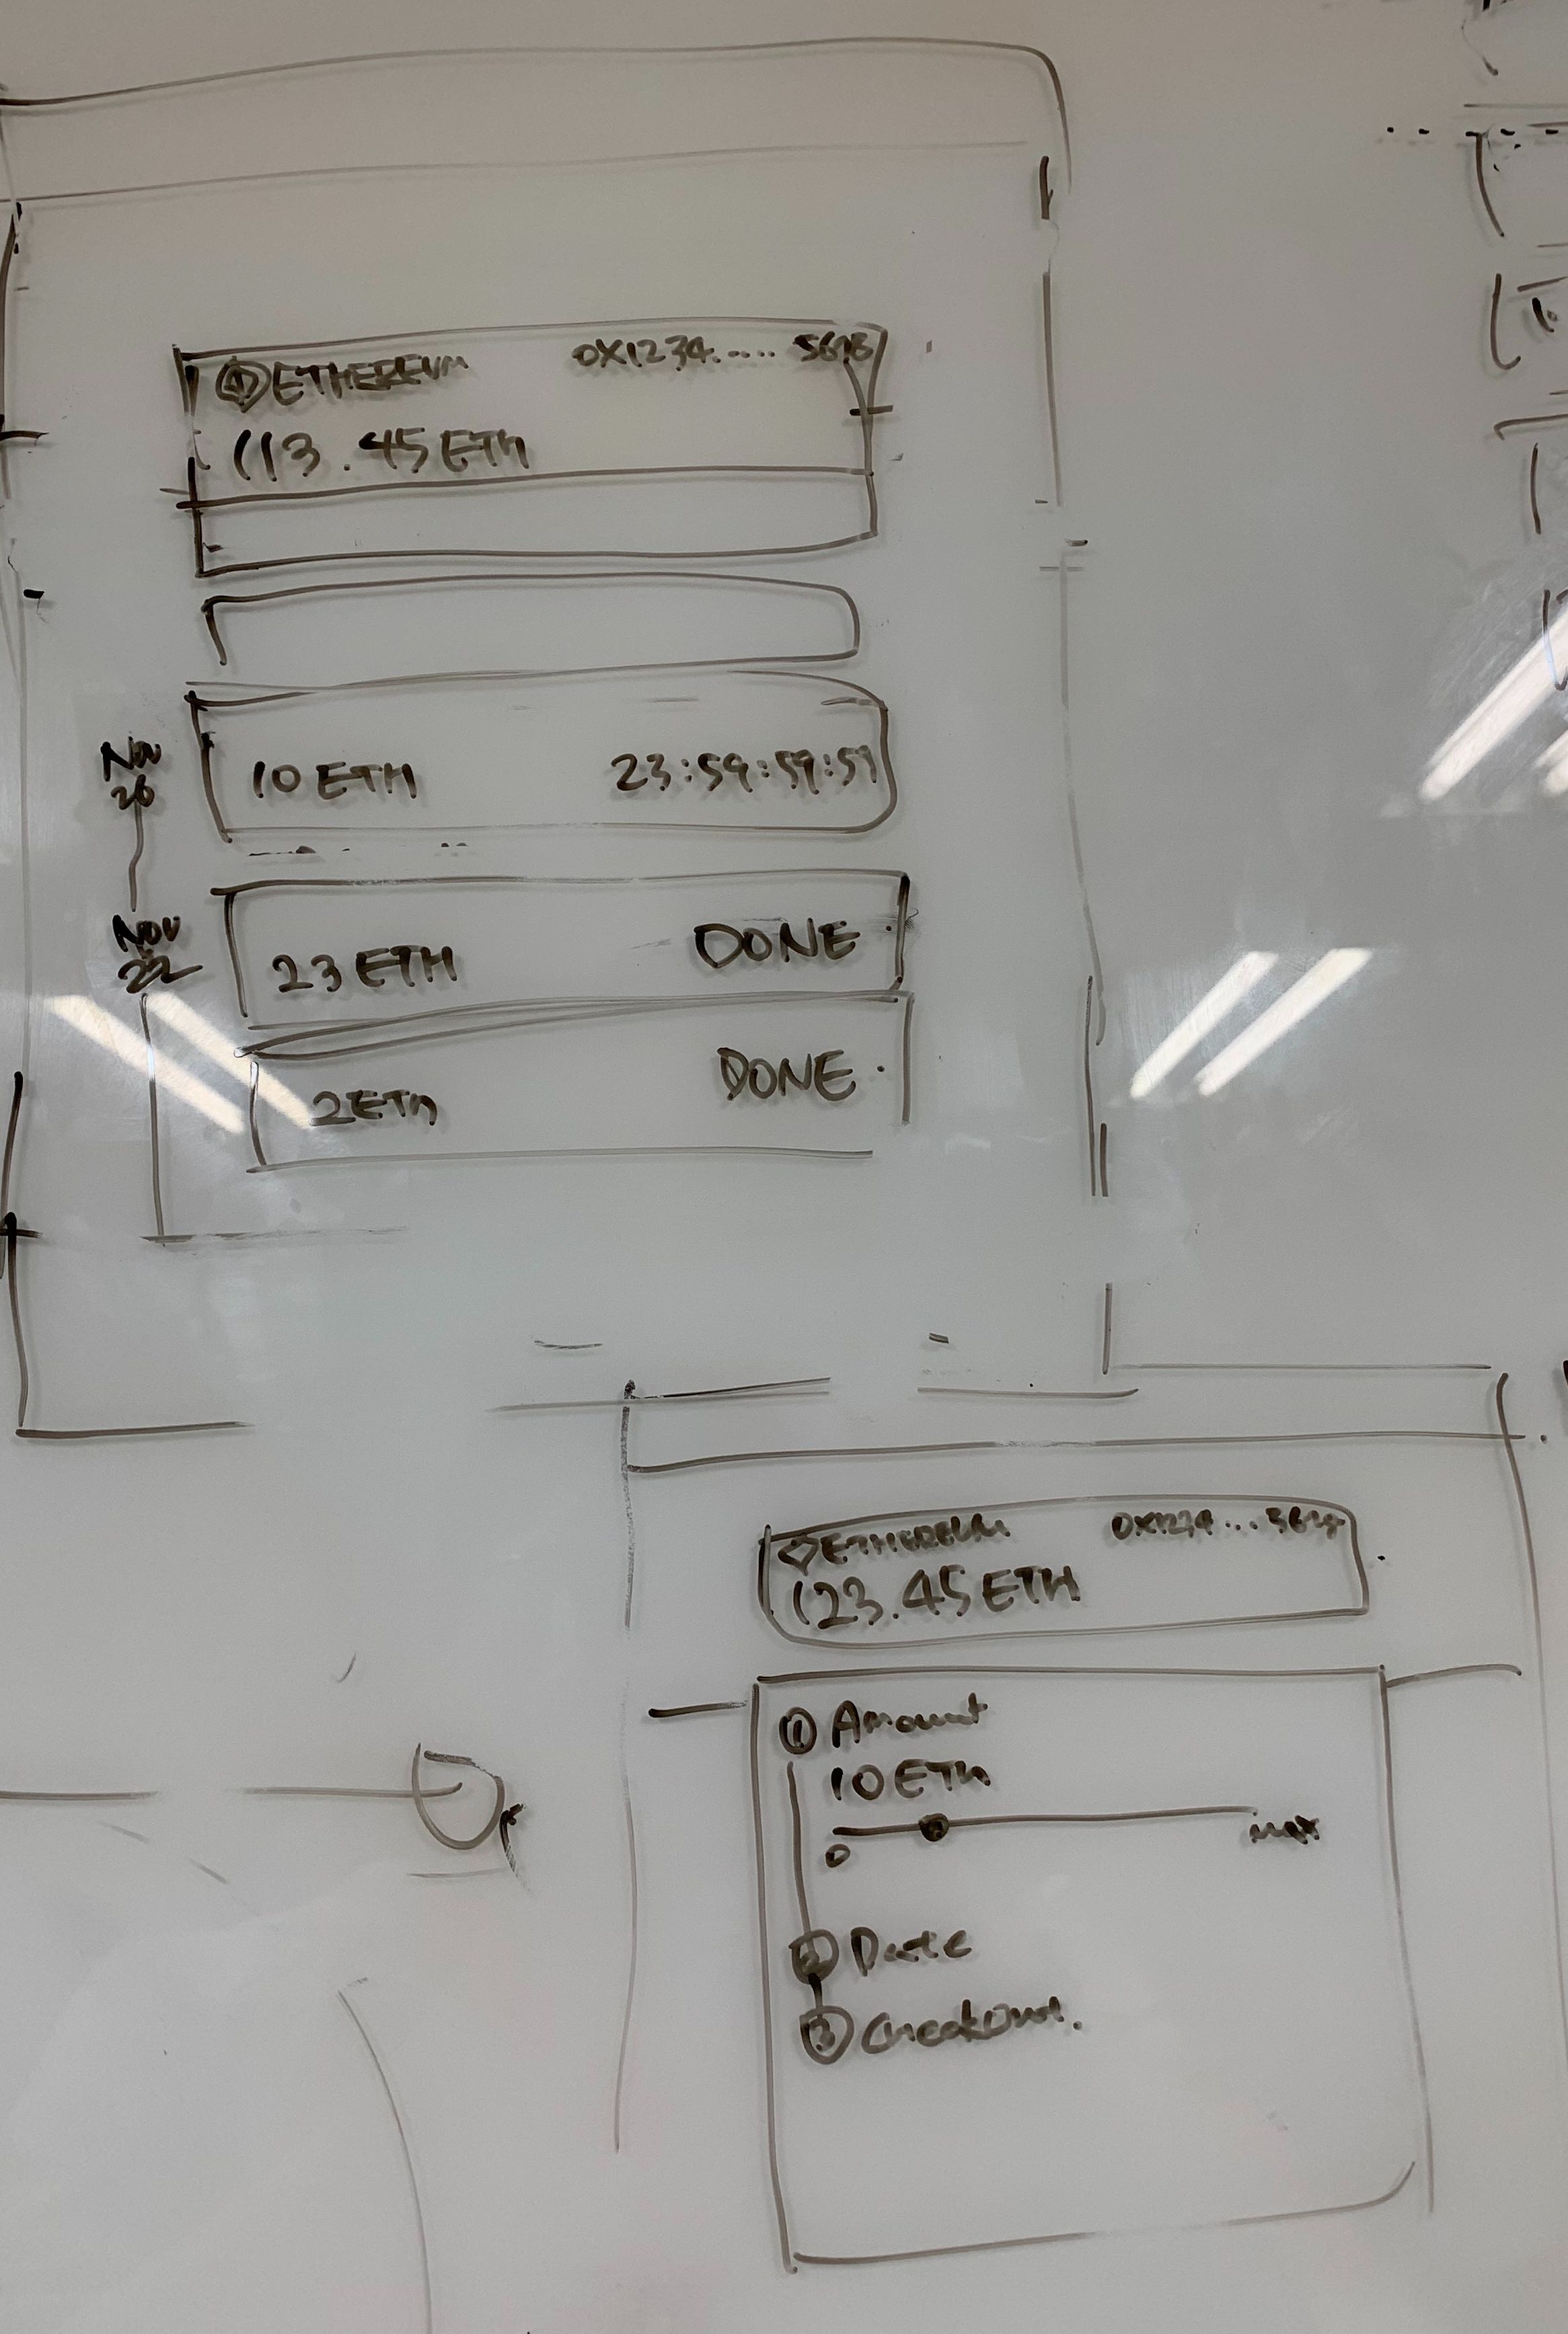 ETHEREUM 0X1234..... 5678
113.45 ETH
Nov
26
10 ETH 23:59:59:59
NOV
22
23 ETH DONE
2 ETH DONE
ETHEREUM 0X1234...5678
123.45 ETH
1 Amount
10 ETH
0 max
2 Date
3 CheckOut.